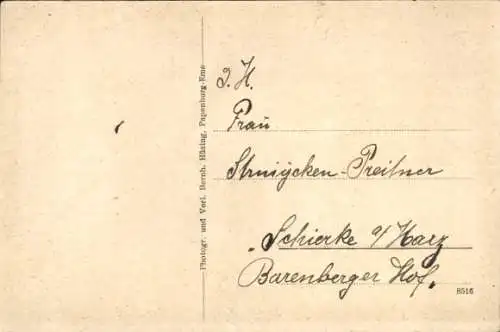 Photogr. und Verl. Bernh. Hüsing, Papenburg-Ems
J. H.
Frau
Struÿcken-Preitner
Schierke a/Harz
Barenberger Hof.
8516